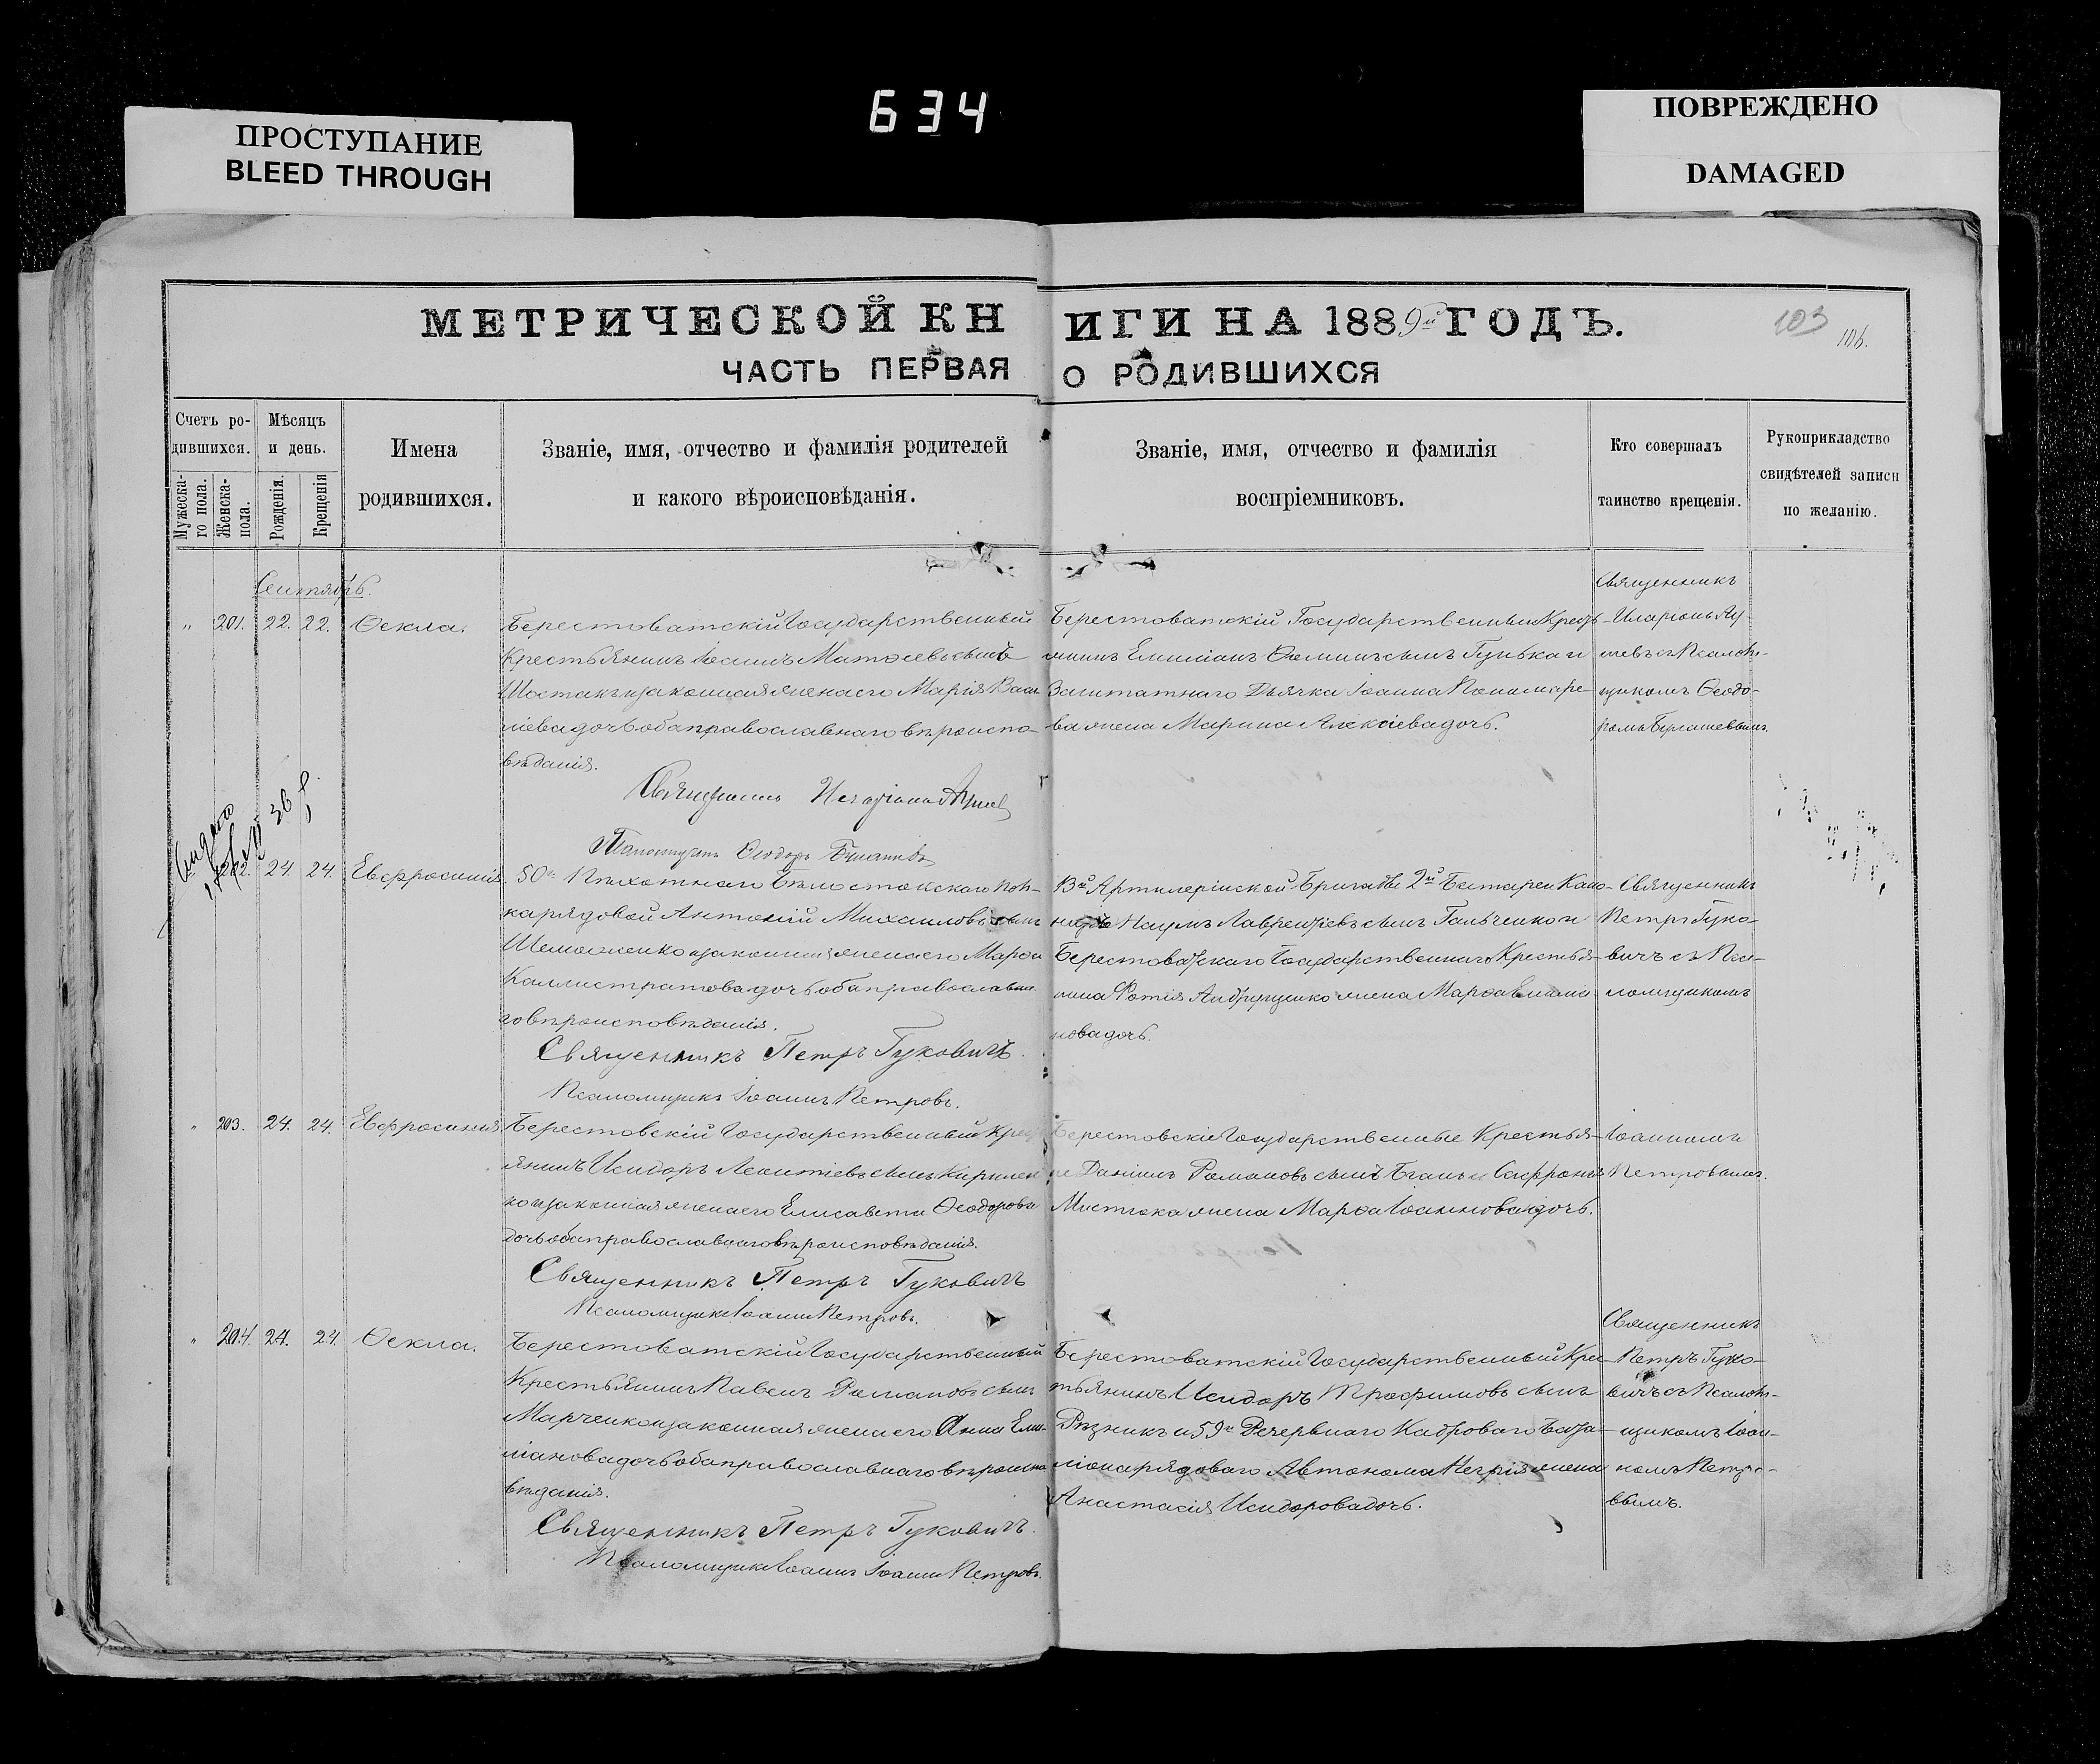 634
ПРОСТУПАНИЕ
BLEED THROUGH
ПОВРЕЖДЕНО
DAMAGED
МЕТРИЧЕСКОЙ КН ИГИ НА 1889й ГОДЪ.
103
106.
ЧАСТЬ ПЕРВАЯ О РОДИВШИХСЯ
Счетъ ро-
дившихся.
Мужеска-
го пола.
Женска-
пола.
Мѣсяцъ
и день.
Рожденія.
Крещенія
Имена
родившихся.
Званіе, имя, отчество и фамилія родителей
и какого вѣроисповѣданія.
Званіе, имя, отчество и фамилія
воспріемниковъ.
Кто совершалъ
таинство крещенія.
Рукоприкладство
свидѣтелей записи
по желанію.
Сентябрь.
" 201. 22. 22. Ѳекла.
Берестоватскій Государственный
Крестьянинъ Іоаннъ Матѳеевъ сынъ
Шостакъ и законная жена его Марія Васи
ліева дочь оба православнаго вѣроиспо-
вѣданія.
Священникъ
Берестоватскій Государственный Крестья
нинъ Емиліанъ Ѳоминъ сынъ и
Заштатнаго Дьячка Іоанна Пономаре-
ва жена Марина Алексіева дочь.
Священникъ
Иларіонъ
съ Псалом-
щикомъ Ѳеодо-
ромъ
Псаломщикъ Ѳеодоръ
202. 24. 24. Евфросинія.
50го Пѣхотнаго Бѣлостокскаго пол-
ка рядовой Антоній Михаиловъ сынъ
и законная жена его Марѳа
Каллистратова дочь оба православна
го вѣроисповѣданія.
Священникъ Петръ Гуковичъ.
Псаломщикъ Іоаннъ Петровъ.
Артилерійской Бригады 2й Батареи Кано-
ниръ Наумъ Лаврентіевъ сынъ Гальченко и
Берестоватскаго Государственнаго Крестья-
нина Фотія жена Марѳа
нова дочь.
Священникъ
Петръ Гуко-
вичъ съ Пса-
ломщикомъ
" 203. 24. 24. Евфросинія.
Берестовскій Государственный Кресть
янинъ Исидоръ Леонтіевъ сынъ Кирилен
ко и законная жена его Елисавета Ѳеодорова
дочь оба православнаго вѣроисповѣданія.
Священникъ Петръ Гуковичъ
Псаломщикъ Іоаннъ Петровъ.
Берестовскіе Государственные Крестья-
не Даніилъ Романовъ сынъ и
жена Марѳа Іоаннова дочь.
Іоанномъ
Петровымъ.
" 204. 24. 24. Ѳекла.
Берестоватскій Государственный
Крестьянинъ Павелъ Романовъ сынъ
Марченко и законная жена его Анна Еми-
ліанова дочь оба православнаго вѣроиспо
вѣданія.
Священникъ Петръ Гуковичъ.
Псаломщикъ Іоаннъ Іоаннъ Петровъ.
Берестоватскій Государственный Крес
тьянинъ Исидоръ Трофимовъ сынъ
Рѣзникъ и 59го Резервнаго Кадроваго Бата-
ліона рядоваго Автонома жена
Анастасія Исидорова дочь.
Священникъ
Петръ Гуко-
вичъ съ Псалом-
щикомъ Іоан-
номъ Петро-
вымъ.